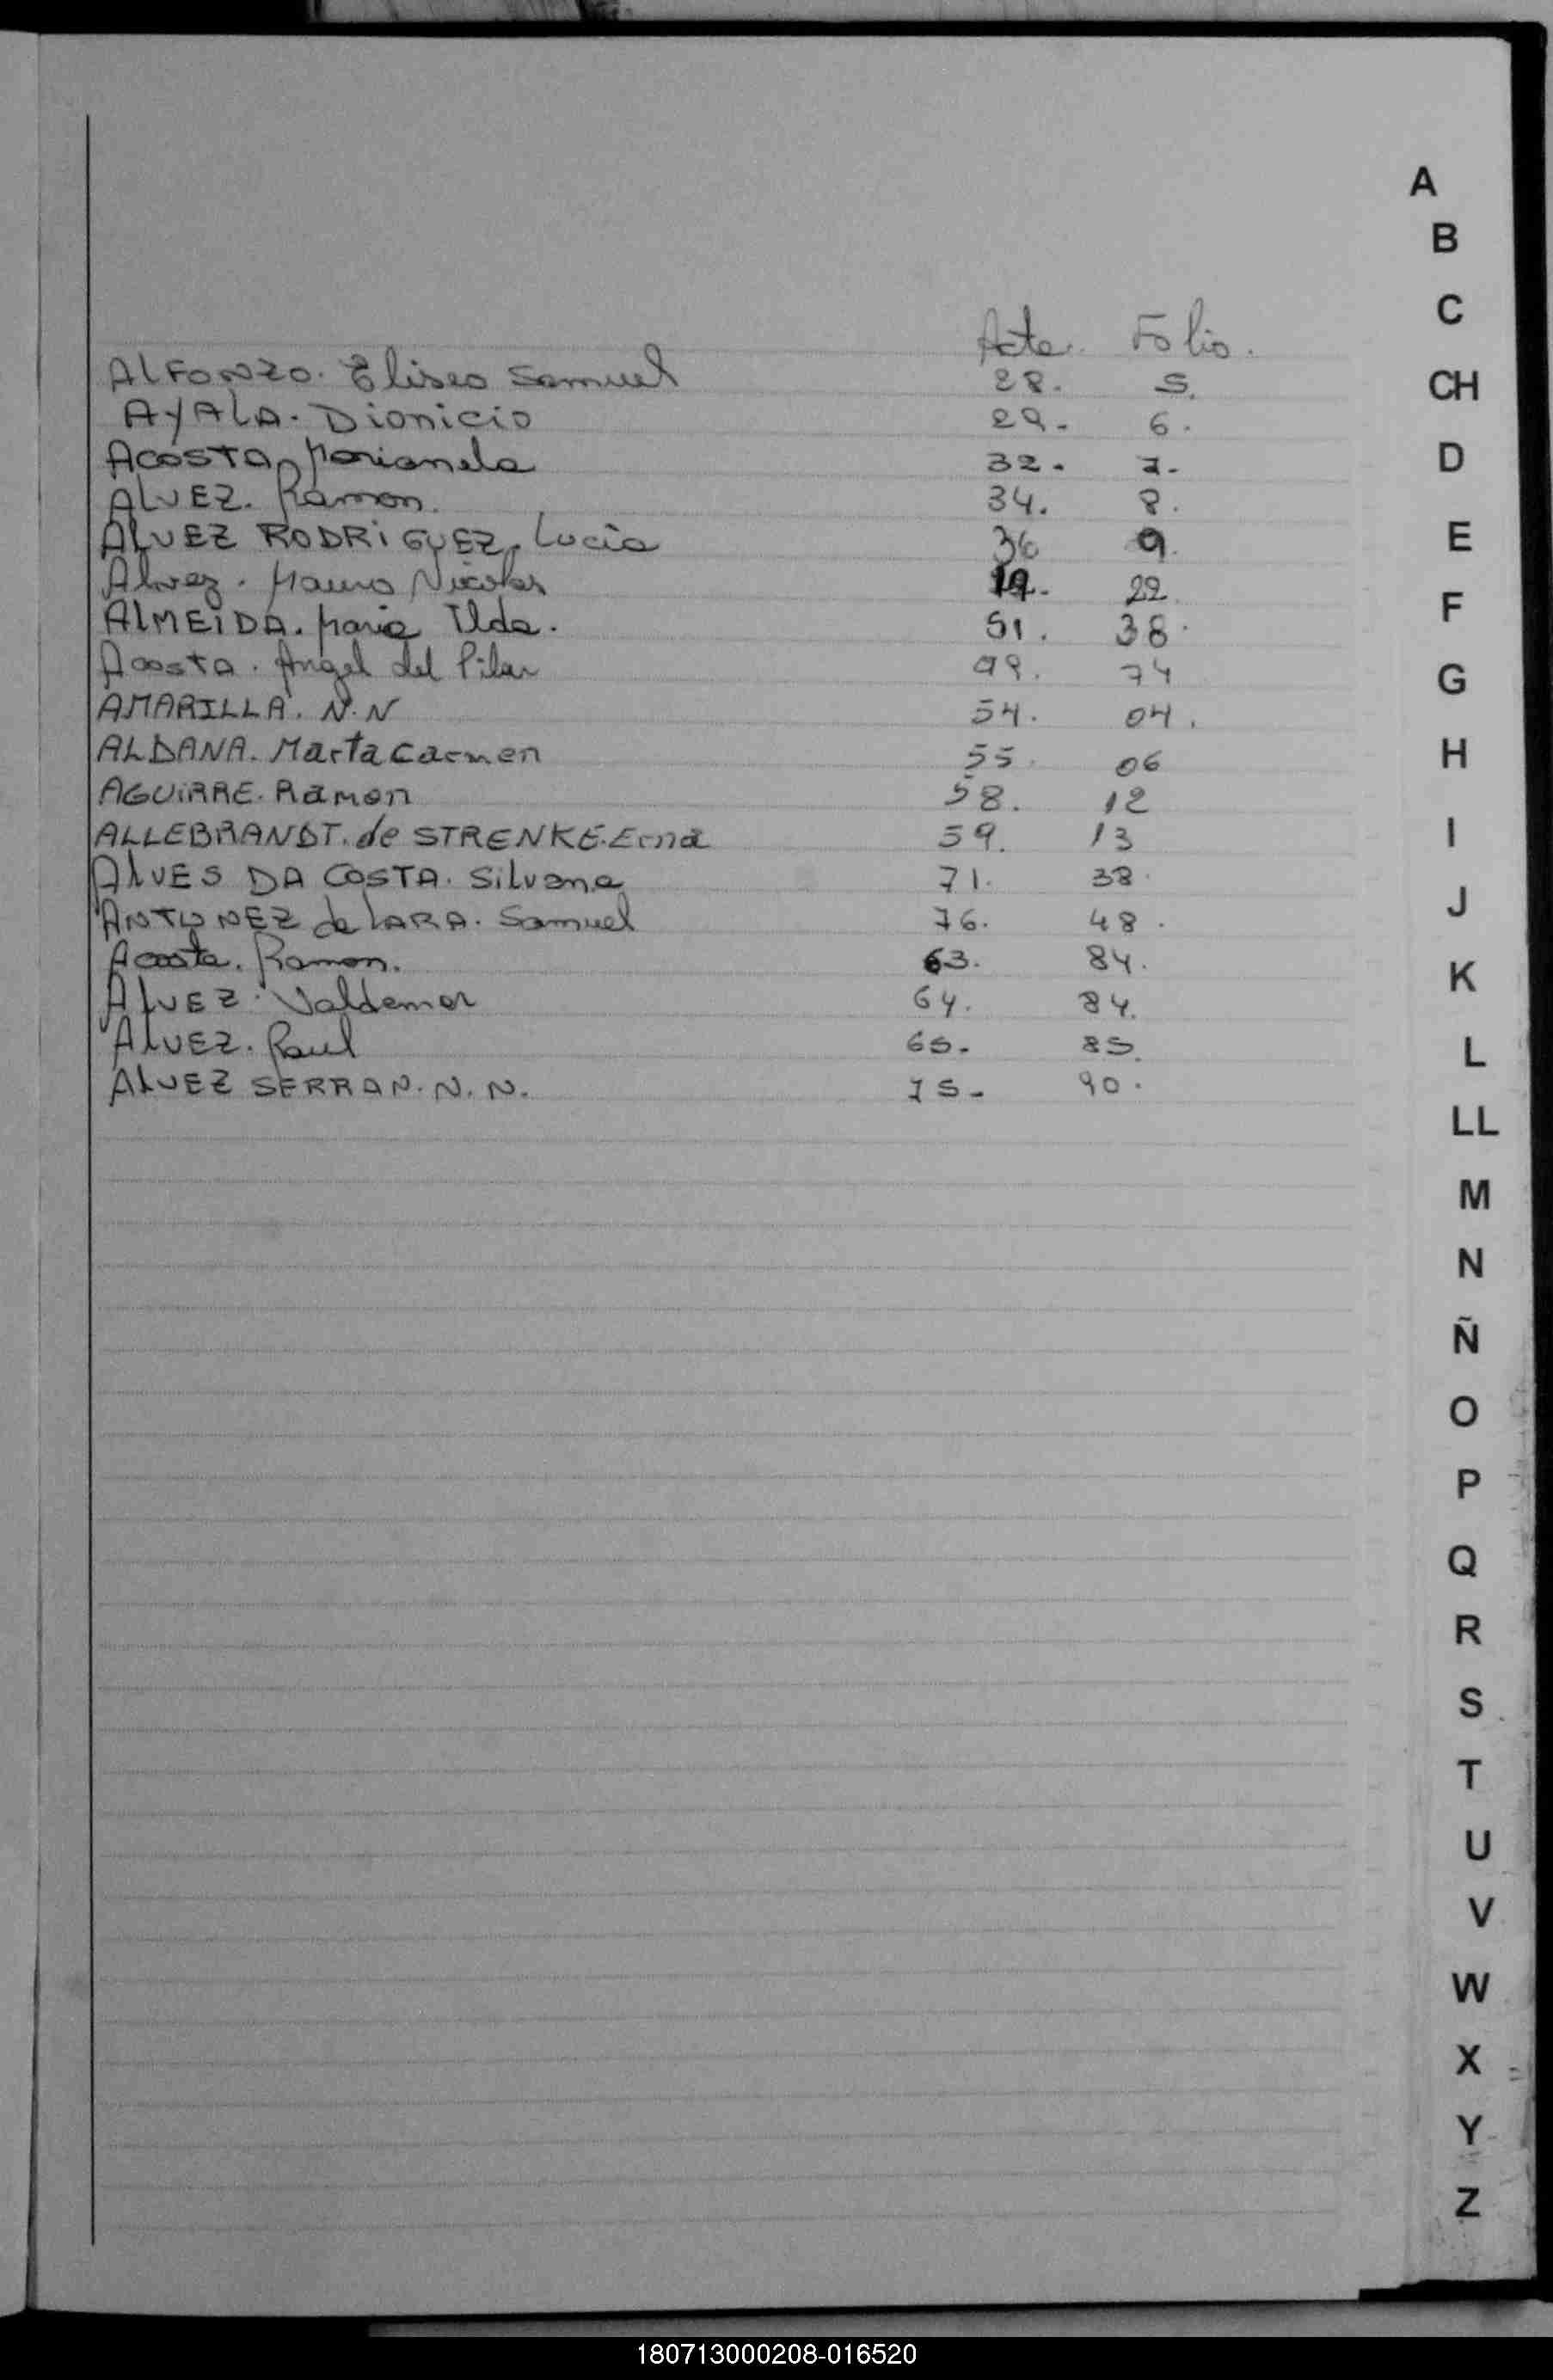 Acta. Folio.
ALFONZO. Eliseo Samuel 28. 5.
AYALA. Dionicio 29. 6.
ACOSTA, Marianela 32. 7.
ALVEZ. Ramon. 34. 8.
ALVEZ RODRiGUEZ. Lucia 36 9.
Alvez. Mauro Nicolas 22
ALMEiDA. Maria Ilda. 51. 38.
Acosta. Angel del Pilar 99. 74
AMARILLA. N.N 54. 04.
ALDANA. Marta Carmen 55. 06
AGUiRRE. Ramon 58. 12
ALLEBRANDT. de STRENKE. Erna 59. 13
ALVES DA COSTA. Silvana 71. 38.
ANTUNEZ de LARA. Samuel 76. 48.
Acosta. Ramon. 63. 84.
ALVEZ. Valdemar 64. 84.
ALVEZ. Raul 65. 85.
ALVEZ SERRAN. N. N. 75. 90.
A
B
C
CH
D
E
F
G
H
I
J
K
L
LL
M
N
Ñ
O
P
Q
R
S
T
U
V
W
X
Y
Z
180713000208-016520